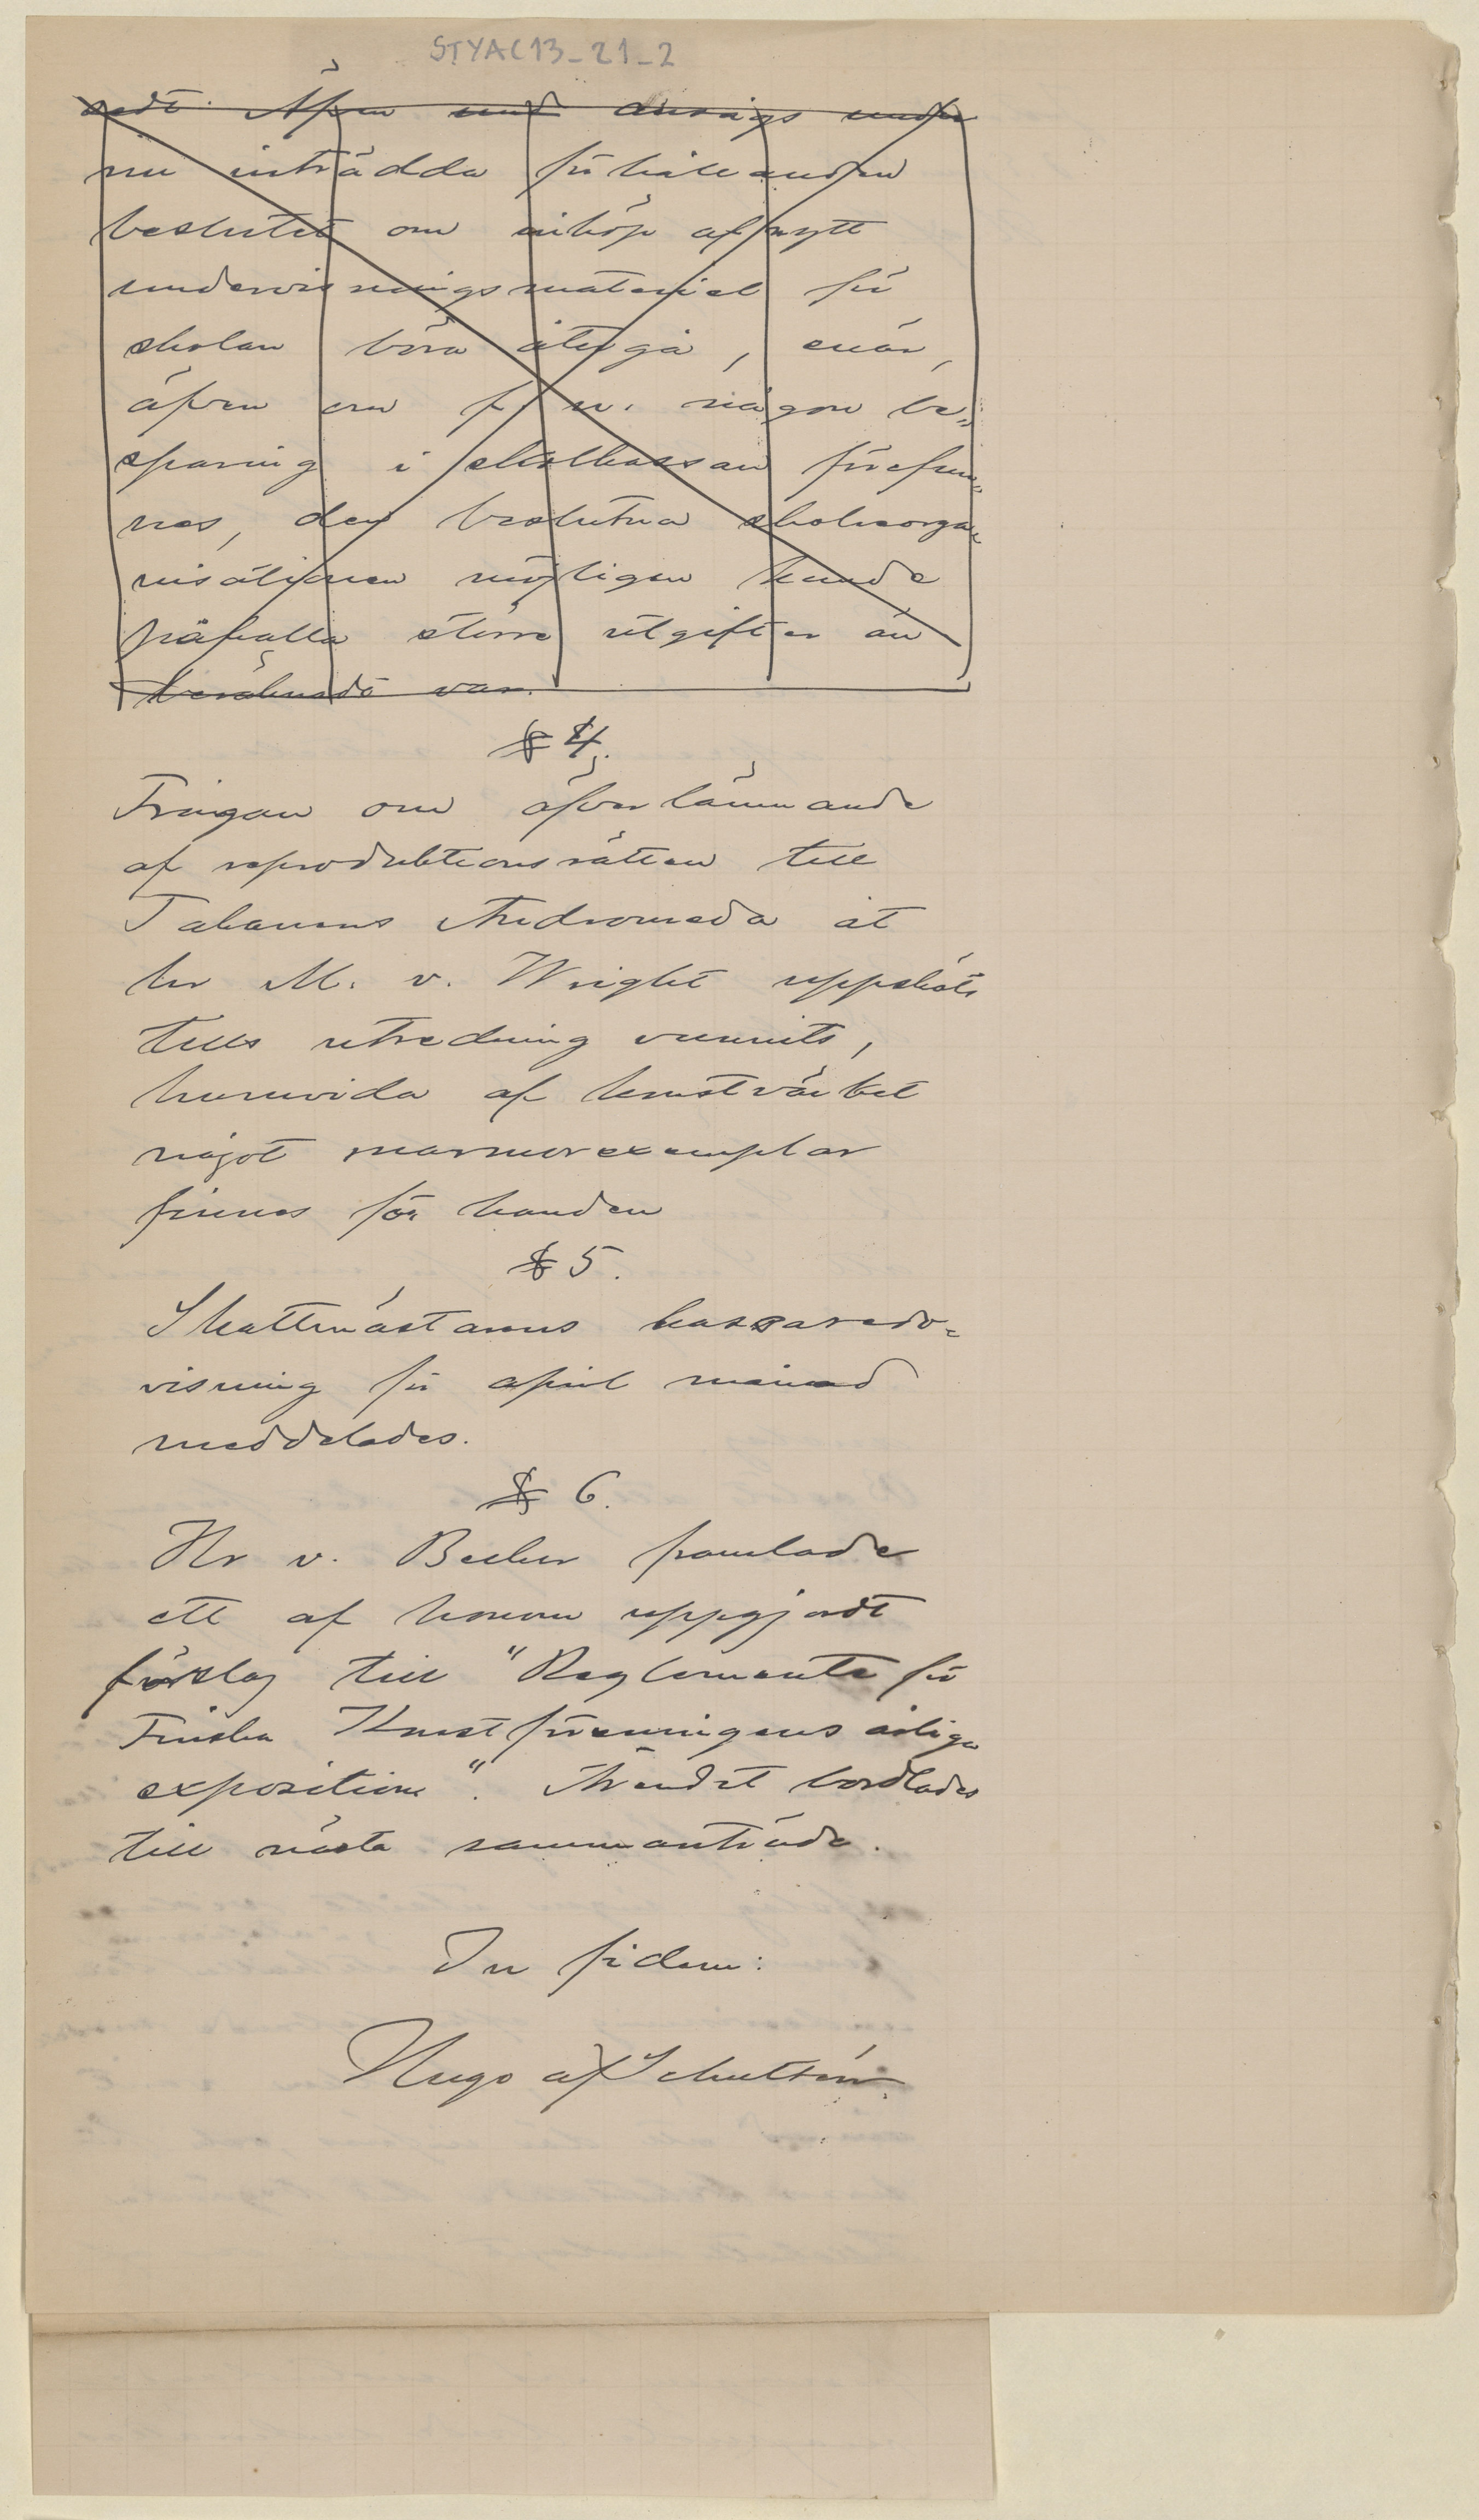 STYAC13_21_2
sedt. Äfven ansågs under
nu inträdda förhållanden
beslutet om inköp af nytt
undervisningsmateriel för
skolan böra återgå, enär,
äfven om f. n. någon be-
sparing i skolkassan förefun-
nes, den beslutna skoleorga-
nisationen möjligen kunde
påkalla större utgifter än
beräknadt var.
§ 4.
Frågan om öfverlämnande
af reproduktionsrätten till
Takanens Andromeda åt
hr M. v. Wright uppsköts
tills utredning vunnits,
huruvida af konstvärket
något marmorexemplar
finnes för handen
§ 5.
Skattmästarens kassaredo-
visning för april månad
meddelades.
§ 6.
Hr v. Becker framlade
ett af honom uppgjordt
förslag till "Reglemente för
Finska Konstföreningens årliga
exposition". Ärendet bordlades
till nästa sammanträde.
In fidem:
Hugo af Schultén.